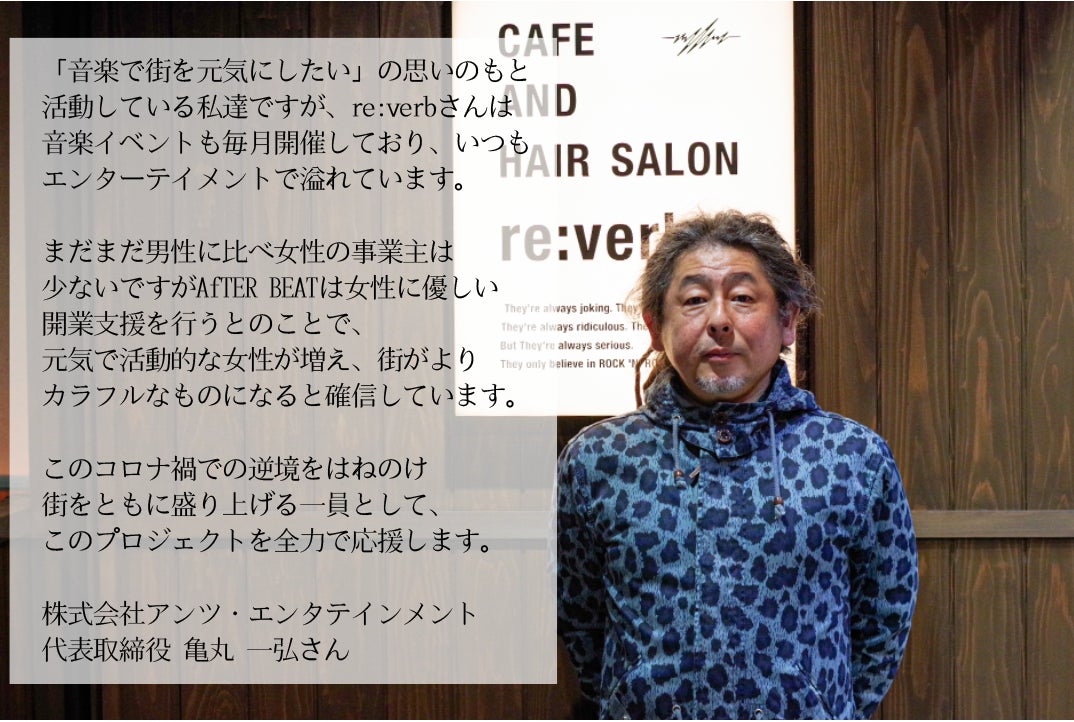 「音楽で街を元気にしたい」の思いのもと
活動している私達ですが、re:verbさんは
音楽イベントも毎月開催しており、いつも
エンターテイメントで溢れています。
まだまだ男性に比べ女性の事業主は
少ないですがAfTER BEATは女性に優しい
開業支援を行うとのことで、
元気で活動的な女性が増え、街がより
カラフルなものになると確信しています。
このコロナ禍での逆境をはねのけ
街をともに盛り上げる一員として、
このプロジェクトを全力で応援します。
株式会社アンツ・エンタテインメント
代表取締役 亀丸 一弘さん
CAFE
AND
HAIR SALON
re:ver
They're always joking. They
They're always ridiculous. The
But They're always serious.
They only believe in ROCK 'N' RO